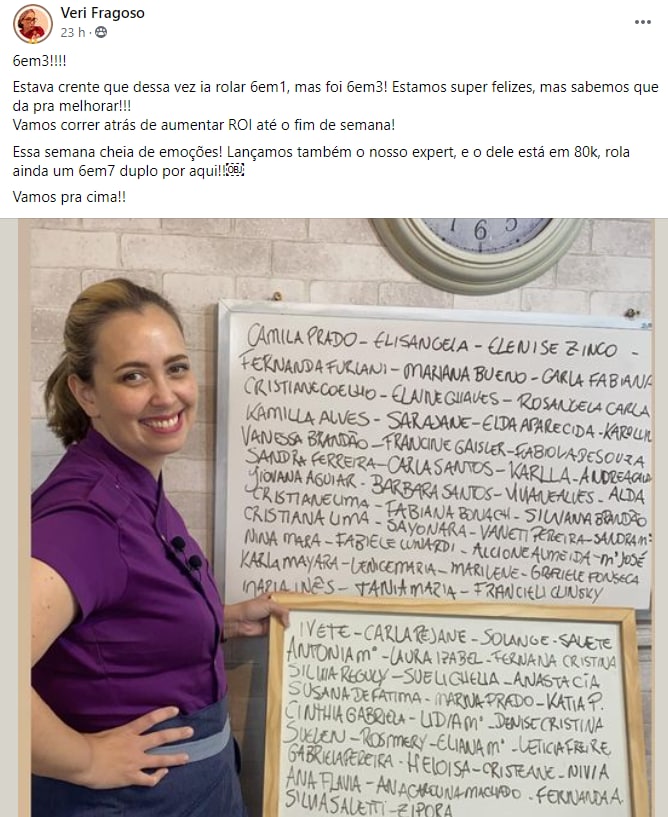 Veri Fragoso
23 h ·
6em3!!!!
Estava crente que dessa vez ia rolar 6em1, mas foi 6em3! Estamos super felizes, mas sabemos que
da pra melhorar!!!
Vamos correr atrás de aumentar ROI até o fim de semana!
Essa semana cheia de emoções! Lançamos também o nosso expert, e o dele está em 80k, rola
ainda um 6em7 duplo por aqui!!￼
Vamos pra cima!!
7 6 5
CAMILA PRADO - ELISANGELA - ELENISE ZINCO -
FERNANDA FURLANI - MARIANA BUENO - CARLA FABIANA
CRISTIANE COELHO - ELAINE CHAVES - ROSANGELA CARLA
KAMILLA ALVES - SARAJANE - ELDA APARECIDA - KAROLLIN
VANESSA BRANDÃO - FRANCINE GAISLER - FABIOLA DE SOUZA
SANDRA FERREIRA - CARLA SANTOS - KARLLA - ANDREA
GIOVANA AGUIAR - BARBARA SANTOS - VIVIANE ALVES - ALDA
CRISTIANE LIMA - FABIANA BONACH - SILVANA BRANDÃO
CRISTIANA LIMA - SAYONARA - VANETI PEREIRA - SANDRA Mª
NINA MARA - FABIELE LUNARDI - ALCIONE ALMEIDA - Mª JOSÉ
KARLA MAYARA - LENICE MARIA - MARILENE - GRAFIELE FONSECA
MARIA INÊS - TANIA MAZIA - FRANCIELI CLINSKY
IVETE - CARLA REJANE - SOLANGE - SALETE
ANTONIA Mª - LAURA IZABEL - FERNANA CRISTINA
SILVIA REGULY - SUELI GHELLA - ANASTACIA
SUSANA DE FATIMA - MARINA PRADO - KATIA P.
CINTHIA GABRIELA - LIDIA Mª - DENISE CRISTINA
SUELEN - ROSMERY - ELIANA Mª - LETICIA FREIRE
GABRIELA PEREIRA - HELOISA - CRISTEANE - NIVIA
ANA FLAVIA - ANA CAROLINA MACHADO - FERNANDA A.
SILVIA SALETTI - ZIPORA